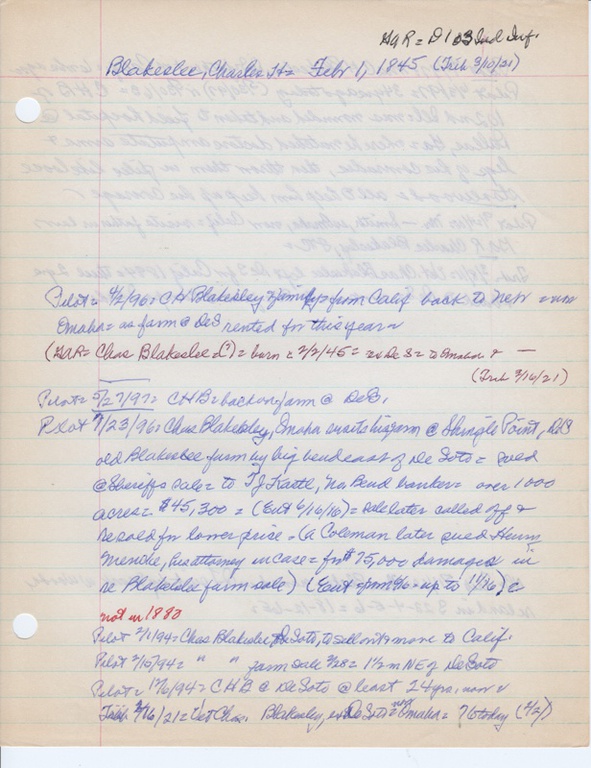 GAR = D 103 Ind Inf.
Blakeslee, Charles H = Febr 1, 1845 (Trib 3/10/21)
Pilot = 4/2/96 = C H Blakesley & family from Calif back to Neb = now
Omaha = as farm @ DeS rented for this year
(GAR = Chas Blakeslee = born 2/2/45 = DeS = to Omaha
(Trib 3/16/21)
Pilot = 5/27/97 = C H B = back on farm @ DeS.
Pilot 7/23/96 = Chas Blakesley, Omaha visits his farm @ Shingle Point, DeS
old Blakeslee farm by big bend east of De Soto = sued
@ Sheriffs sale = to banker = over 1000
acres = $45,300 = (Ent 6/16/16) = sale later called off &
resold for lower price = (a Coleman later sued
his attorney in case = for $75,000 damages in
re Blakeslee farm sale) (Ent up to 11/16)
not in 1880
Pilot 2/1/94 = Chas Blakeslee, DeSoto, to sell out & move to Calif.
Pilot 2/15/94 = " " farm sale 2/28 = 1½ m NE of DeSoto
Pilot = /94 = C H B @ DeSoto @ least 24 yrs. now
Trib 2/16/21 = Vet Chas. Blakesley, ex DeSoto now Omaha = 76 today (2/2)